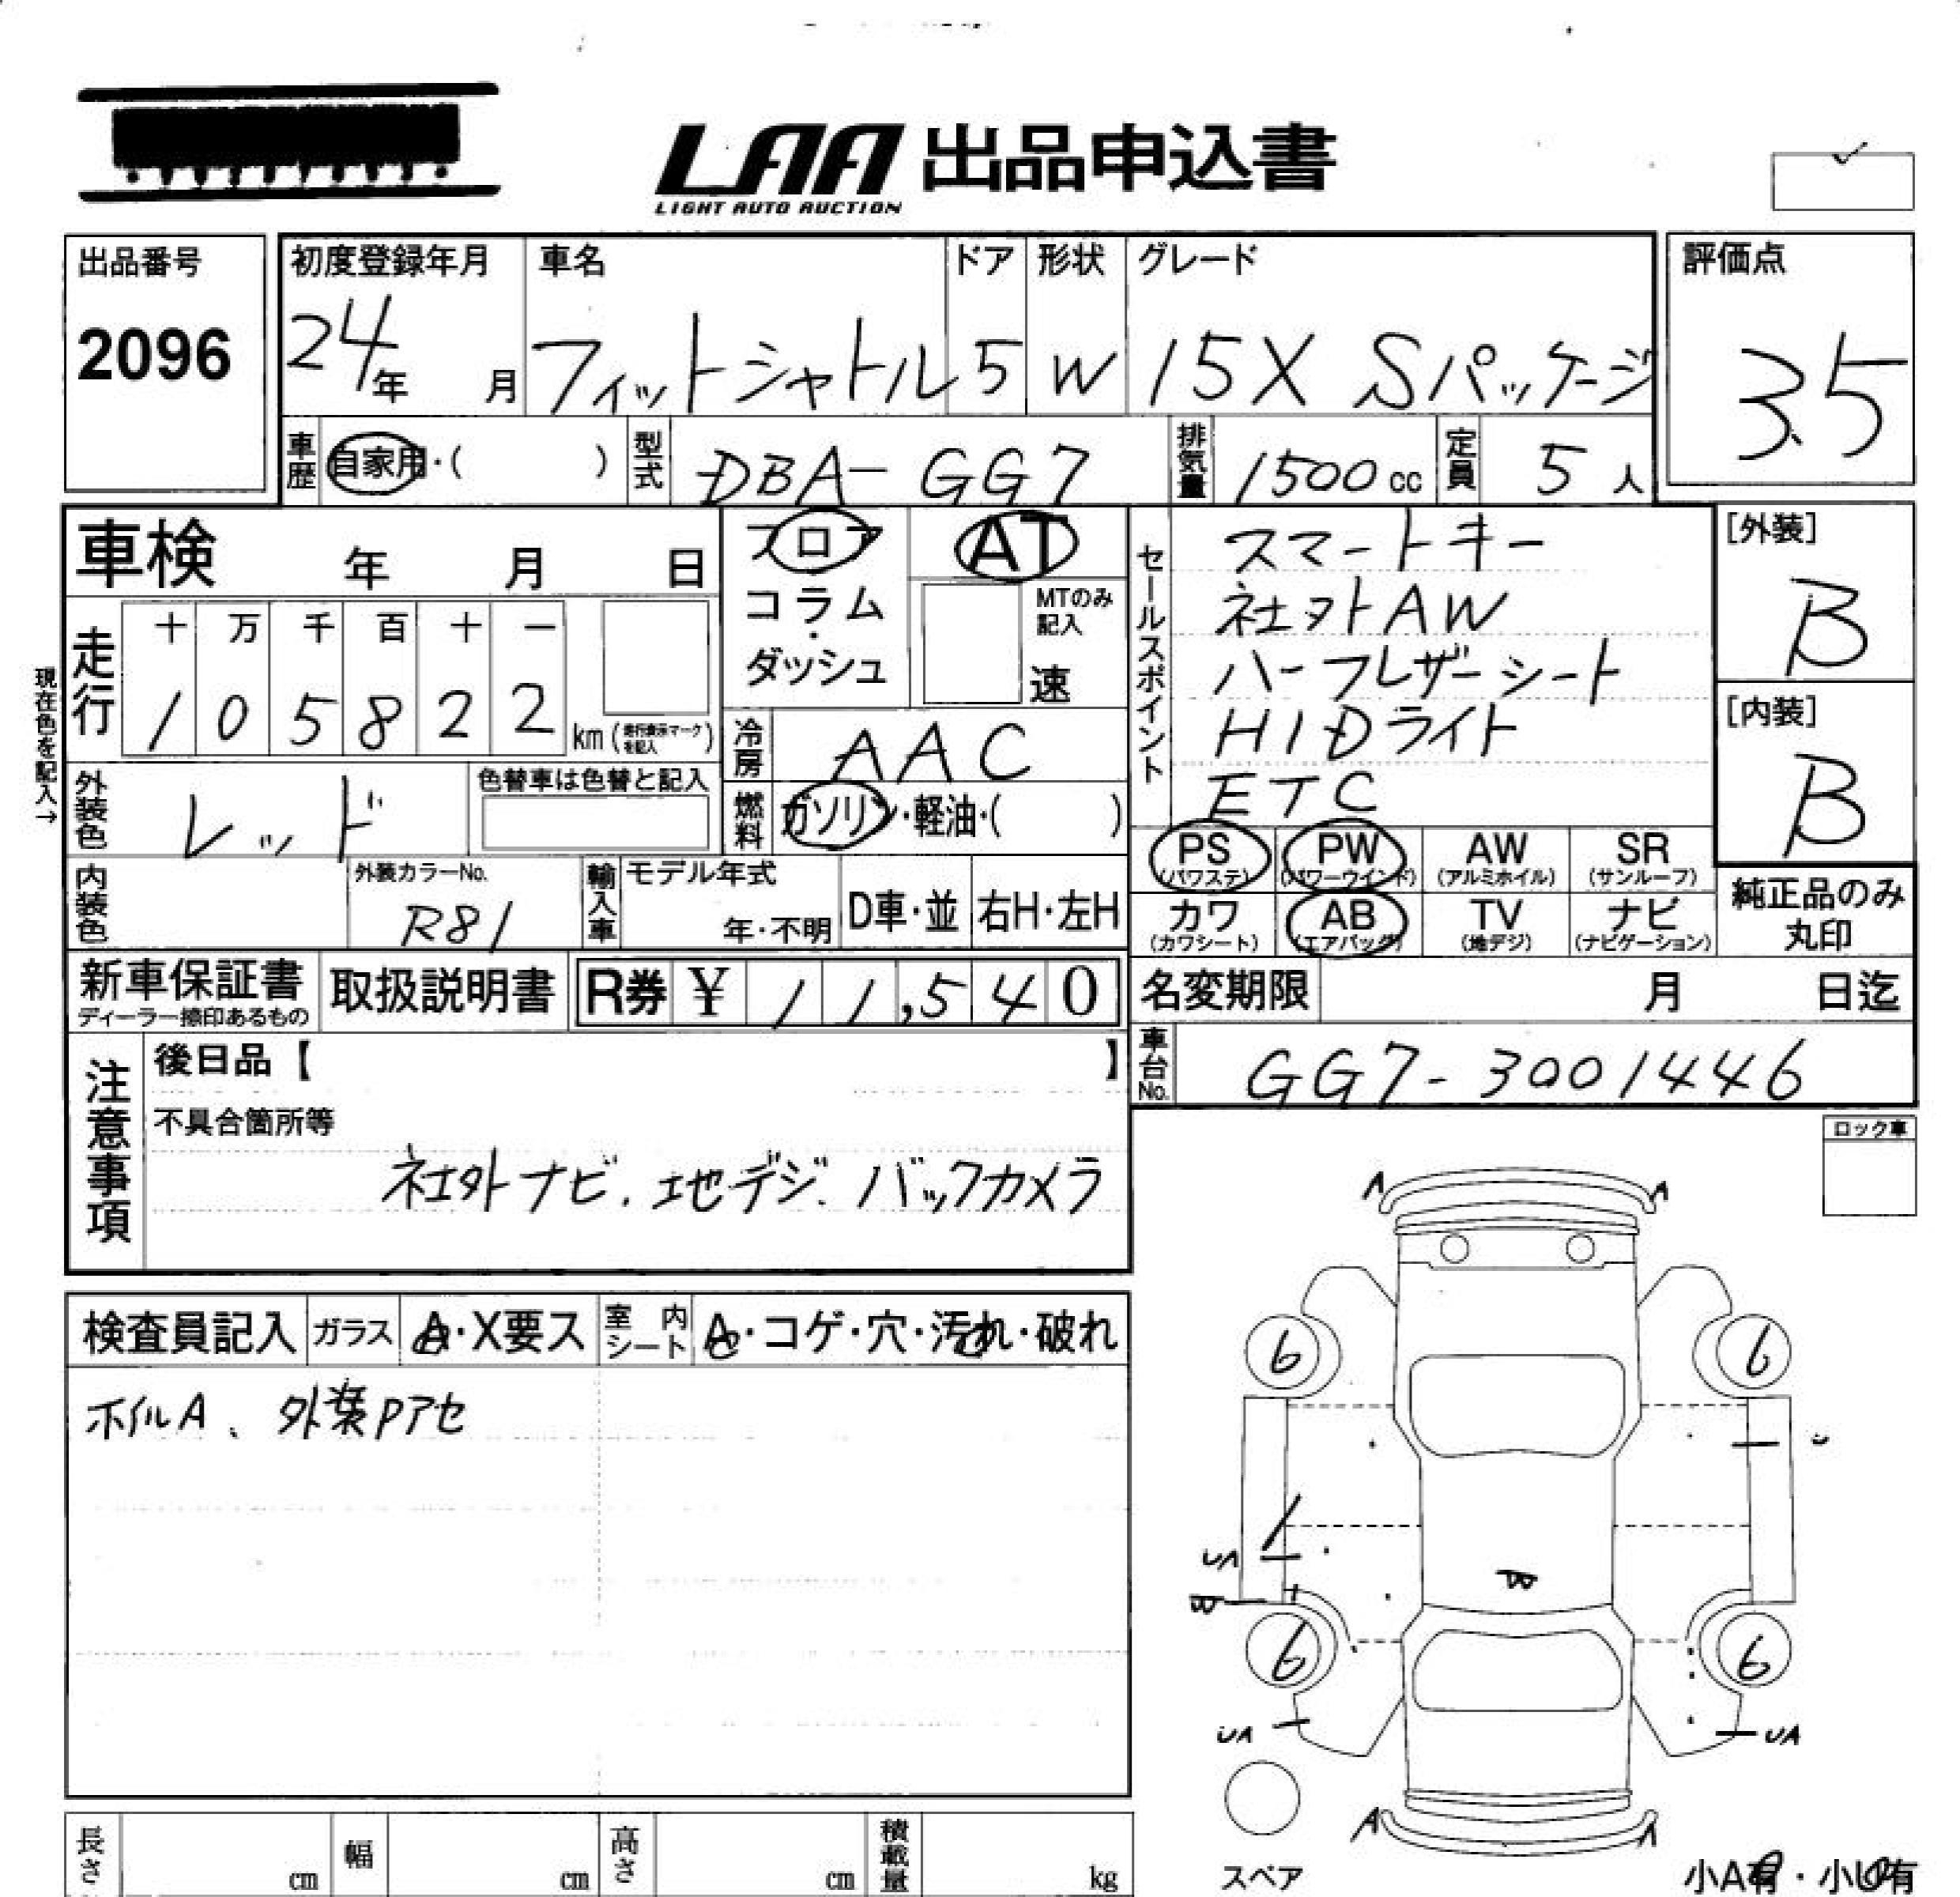 LAA 出品申込書
LIGHT AUTO AUCTION
出品番号
2096
初度登録年月
24年 月
車名
フィットシャトル
ドア
5
形状
W
グレード
15X Sパッケージ
評価点
3.5
車歴 自家用・( )
型式 DBA-GG7
排気量 1500 cc
定員 5 人
車検 年 月 日
フロア
コラム
・
ダッシュ
AT
MTのみ
記入
速
セールスポイント
スマートキー
社外AW
ハーフレザーシート
HIDライト
ETC
[外装]
B
[内装]
B
現在色を記入→
走行
十 万 千 百 十 一
1 0 5 8 2 2 km (走行表示マークを記入)
冷房 AAC
外装色 レッド
色替車は色替と記入
燃料 ガソリン・軽油・( )
PS (パワステ)
PW (パワーウインド)
AW (アルミホイル)
SR (サンルーフ)
内装色
外装カラーNo.
R81
輸入車
モデル年式
年・不明
D車・並
右H・左H
カワ (カワシート)
AB (エアバッグ)
TV (地デジ)
ナビ (ナビゲーション)
純正品のみ
丸印
新車保証書
ディーラー捺印あるもの
取扱説明書
R券 ¥ 11,540
名変期限 月 日迄
車台No. GG7-3001446
注意事項
後日品【 】
不具合箇所等
社外ナビ.地デジ.バックカメラ
ロック車
検査員記入
ガラス A・X要ス
室内シート A・コゲ・穴・汚れ・破れ
ホイルA、外装Pアセ
A A
6 6
UA
B
B
6 6
UA UA
A A
スペア
小A有・小U有
長さ cm
幅 cm
高さ cm
積載量 kg